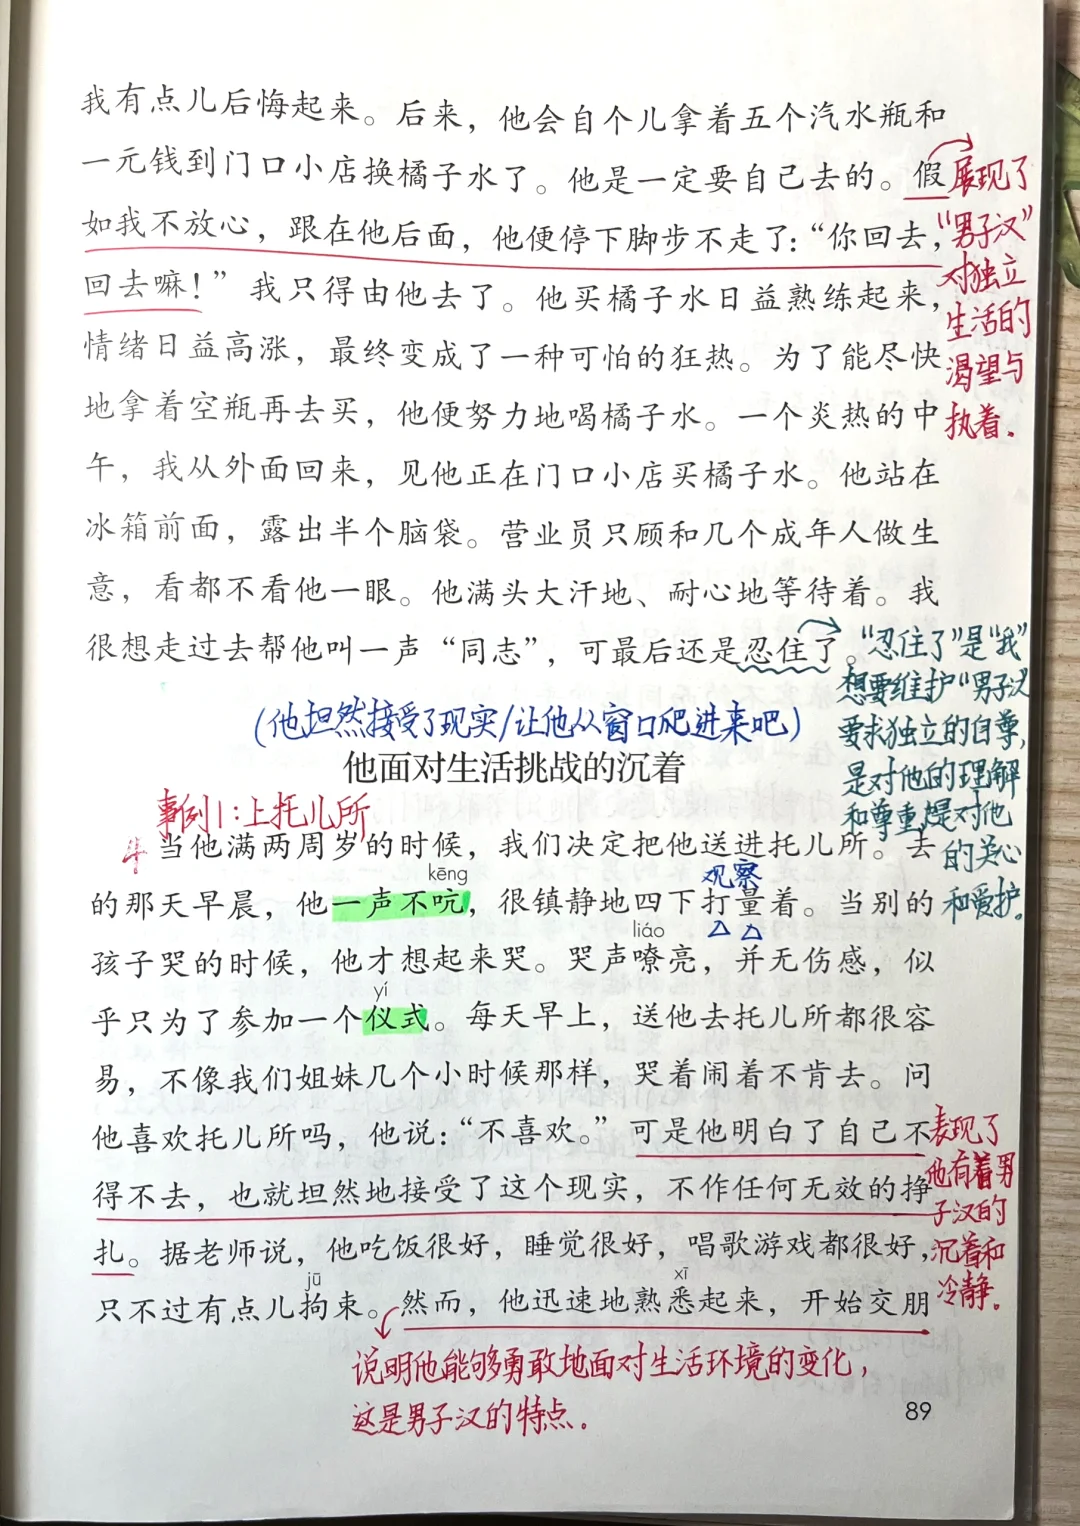 我有点儿后悔起来。后来，他会自个儿拿着五个汽水瓶和
一元钱到门口小店换橘子水了。他是一定要自己去的。假
如我不放心，跟在他后面，他便停下脚步不走了：“你回去，
回去嘛！”我只得由他去了。他买橘子水日益熟练起来，
情绪日益高涨，最终变成了一种可怕的狂热。为了能尽快
地拿着空瓶再去买，他便努力地喝橘子水。一个炎热的中
午，我从外面回来，见他正在门口小店买橘子水。他站在
冰箱前面，露出半个脑袋。营业员只顾和几个成年人做生
意，看都不看他一眼。他满头大汗地、耐心地等待着。我
很想走过去帮他叫一声“同志”，可最后还是忍住了。
展现了
“男子汉”
对独立
生活的
渴望与
执着.
“忍住了”是“我”
想要维护“男子汉
要求独立的自尊,
是对他的理解
和尊重,是对他
的关心
和爱护。
(他坦然接受了现实/让他从窗口爬进来吧)
他面对生活挑战的沉着
事例1:上托儿所
当他满两周岁的时候，我们决定把他送进托儿所。去
kēng
观察
的那天早晨，他一声不吭，很镇静地四下打量着。当别的
liáo
孩子哭的时候，他才想起来哭。哭声嘹亮，并无伤感，似
yí
乎只为了参加一个仪式。每天早上，送他去托儿所都很容
易，不像我们姐妹几个小时候那样，哭着闹着不肯去。问
他喜欢托儿所吗，他说：“不喜欢。”可是他明白了自己不
得不去，也就坦然地接受了这个现实，不作任何无效的挣
扎。据老师说，他吃饭很好，睡觉很好，唱歌游戏都很好，
jū
xī
只不过有点儿拘束。然而，他迅速地熟悉起来，开始交朋
表现了
他有着男
子汉的
沉着和
冷静。
说明他能够勇敢地面对生活环境的变化,
这是男子汉的特点.
89